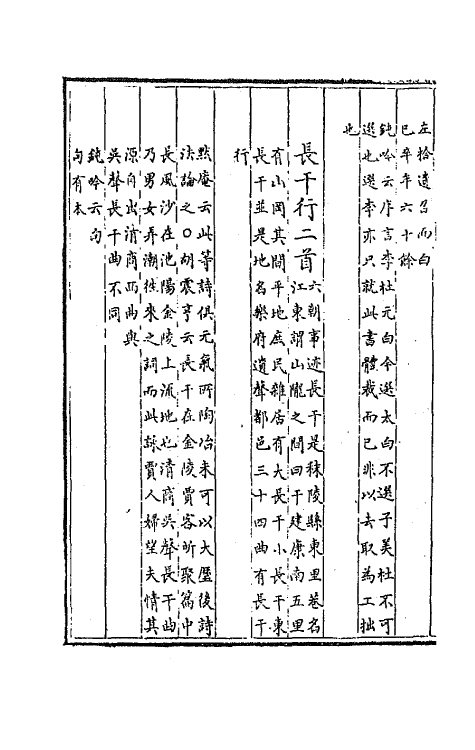 左拾遺召而白
已卒年六十餘
鈍吟云序言李杜元白今選太白不選子美杜不可
選也選李亦只就此書體裁而已非以去取為工拙
也
長干行二首六朝事迹長干是秣陵縣東里巷名
江東謂山隴之間曰干建康南五里
有山岡其間平地庶民雜居有大長干小長干東
長干並是地名樂府遺聲都邑三十四曲有長干
行
默庵云此等詩俱元氣所陶冶未可以大歷後詩
法論之〇胡震亨云長干在金陵賈客所聚篇中
長風沙在池陽金陵上流地也清商吳聲長干曲
乃男女弄潮往來之詞而此詠賈人婦望夫情其
源自出清商西曲與
吳聲長干曲不同
鈍吟云句
句有本